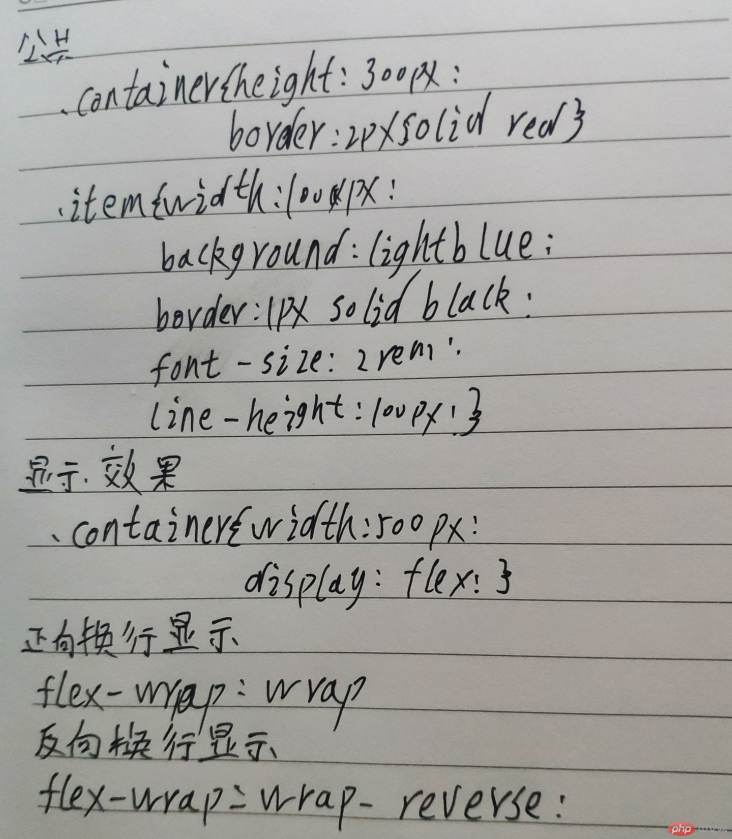 公共
.container{height: 300px;
border:2px solid red}
.item{width:100px;
background:lightblue;
border:1px solid black;
font-size: 2rem;
line-height:100px;}
显示.效果
.container{width:500px;
display: flex;}
正向换行显示
flex-wrap: wrap
反向换行显示
flex-wrap: wrap- reverse:
php